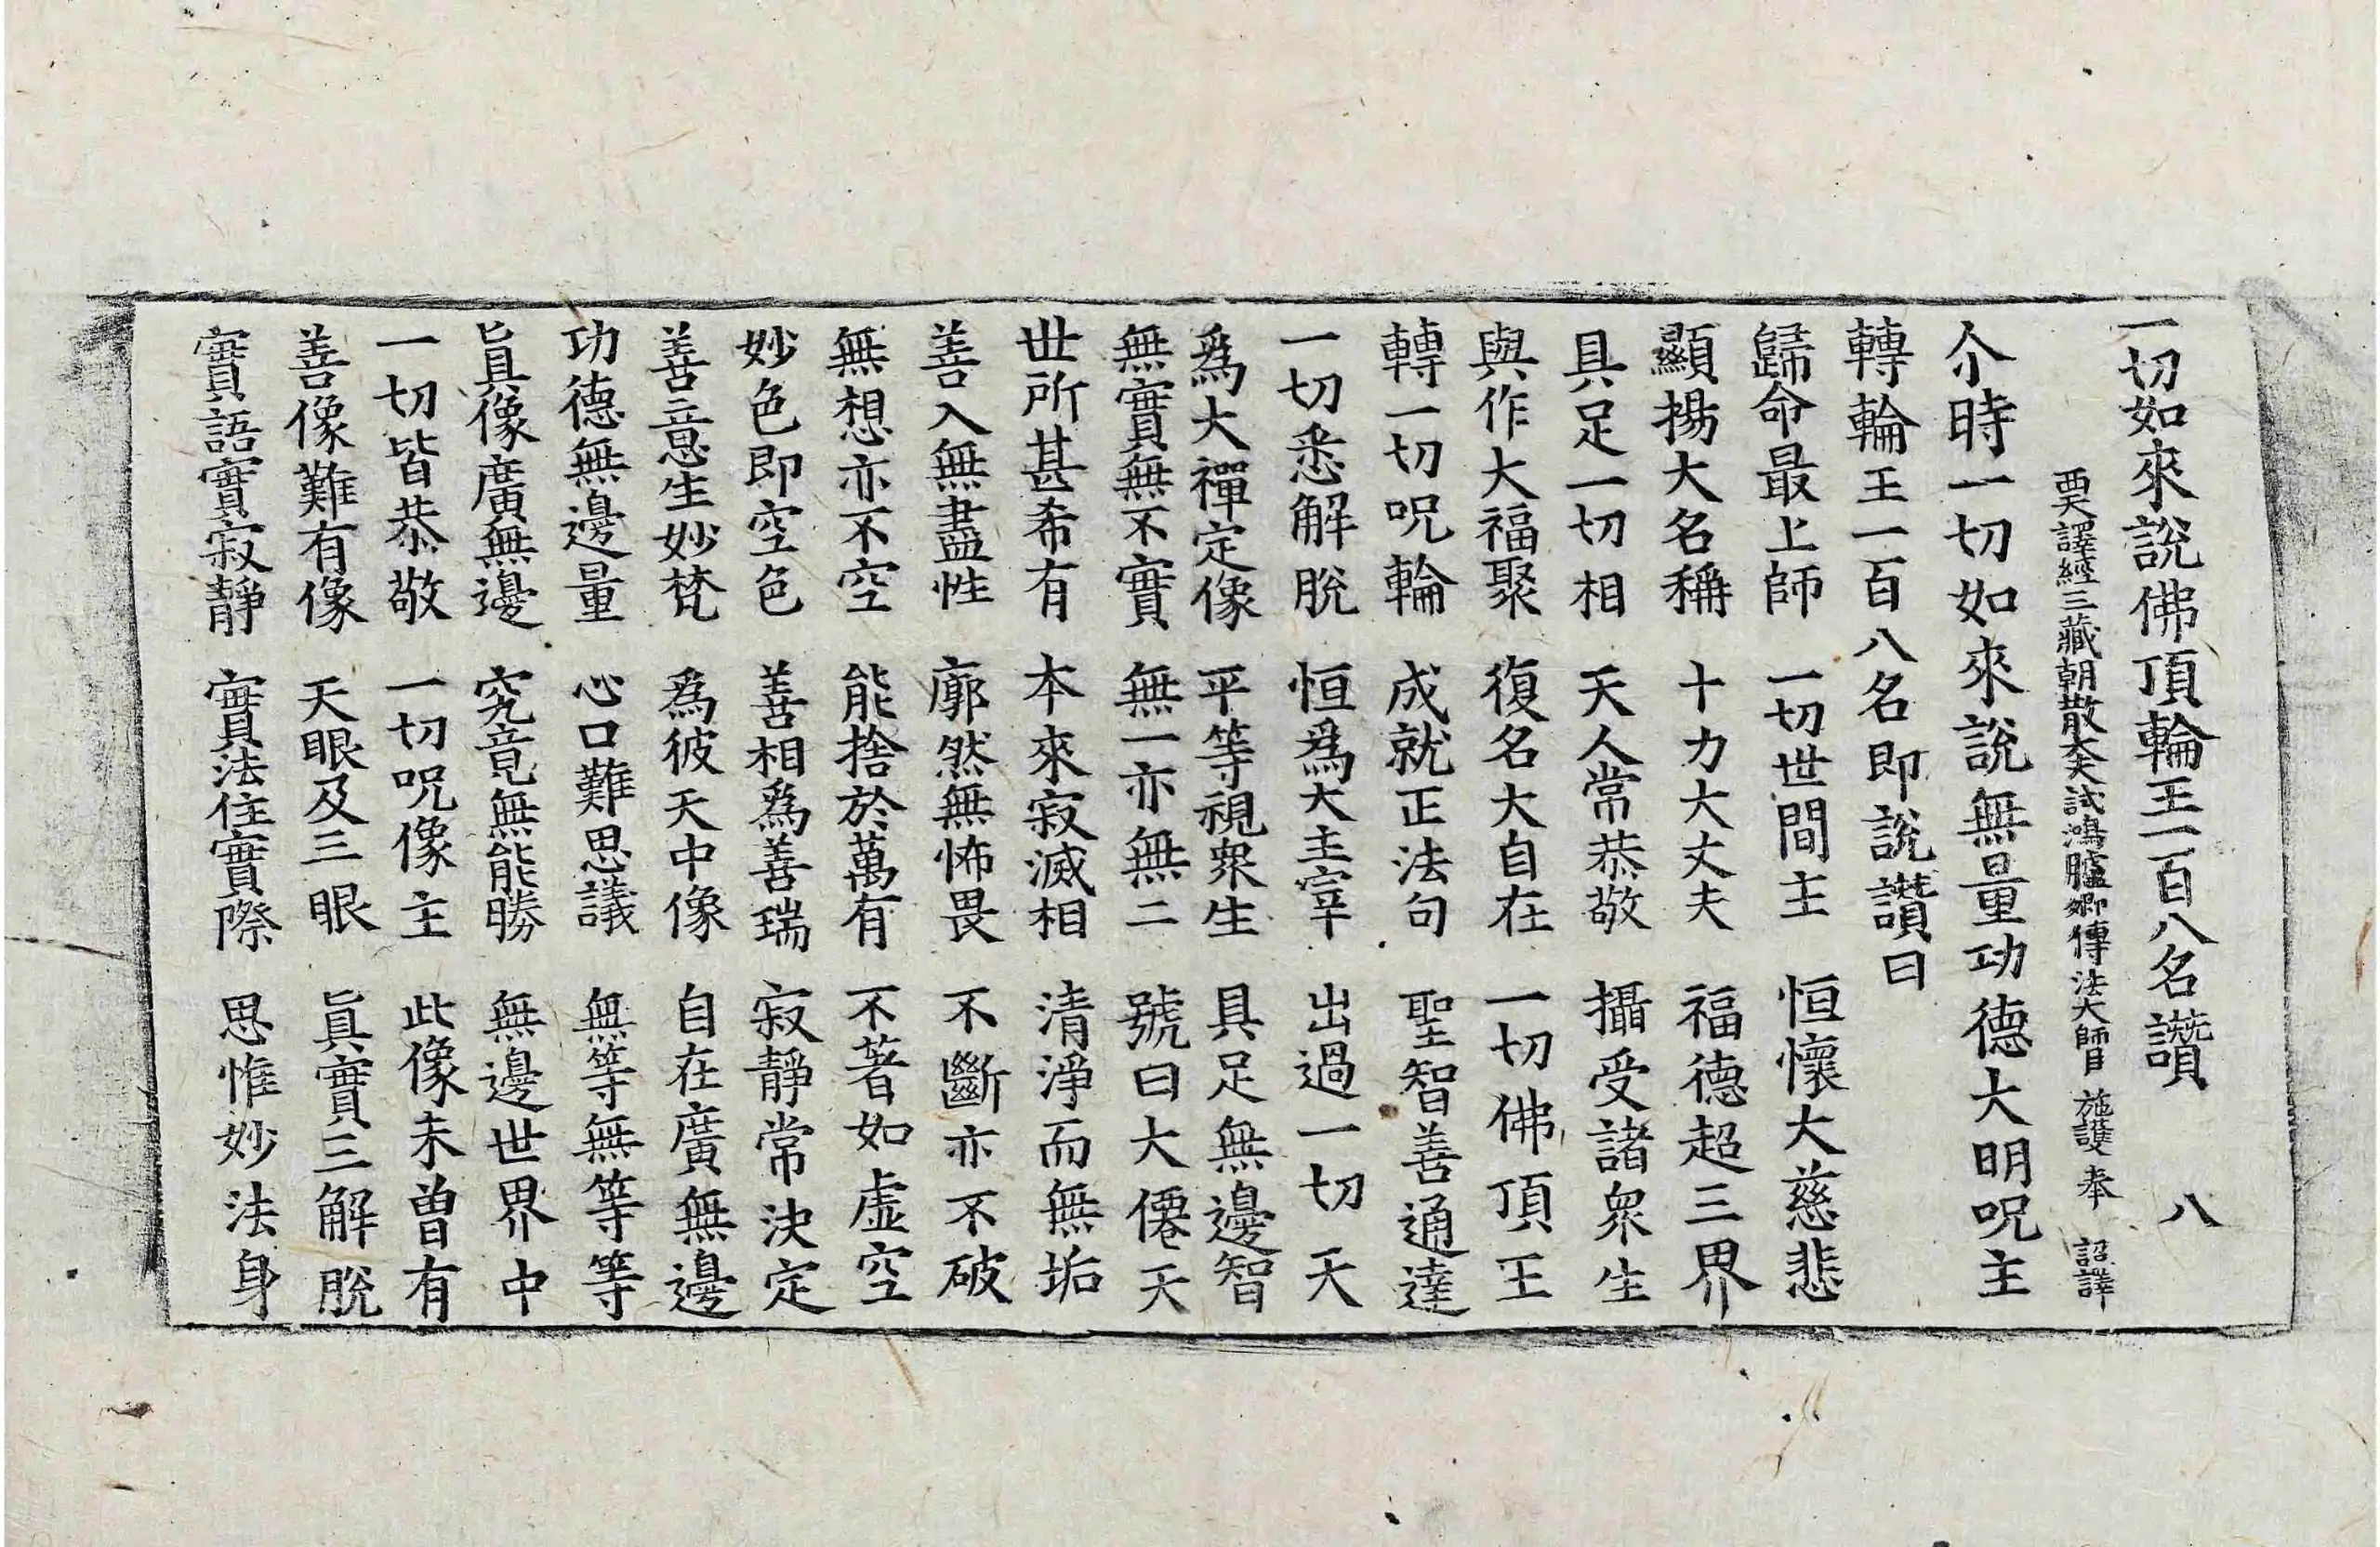 一切如來說佛頂輪王一百八名讚 八
西天譯經三藏朝散大夫試鴻臚卿傳法大師臣 施護 奉 詔譯
尒時一切如來說無量功德大明呪主
轉輪王一百八名即說讚曰
歸命最上師 一切世間主 恒懷大慈悲
顯揚大名稱 十力大丈夫 福德超三界
具足一切相 天人常恭敬 攝受諸衆生
與作大福聚 復名大自在 一切佛頂王
轉一切呪輪 成就正法句 聖智善通達
一切悉解脫 恒爲大主宰 出過一切天
爲大禪定像 平等視衆生 具足無邊智
無實無不實 無一亦無二 號曰大僊天
世所甚希有 本來寂滅相 清淨而無垢
善入無盡性 廓然無怖畏 不斷亦不破
無想亦不空 能捨於萬有 不著如虛空
妙色即空色 善相爲善瑞 寂靜常決定
善意生妙梵 爲彼天中像 自在廣無邊
功德無邊量 心口難思議 無等無等等
眞像廣無邊 究竟無能勝 無邊世界中
一切皆恭敬 一切呪像主 此像未曾有
善像難有像 天眼及三眼 眞實三解脫
實語實寂靜 實法住實際 思惟妙法身